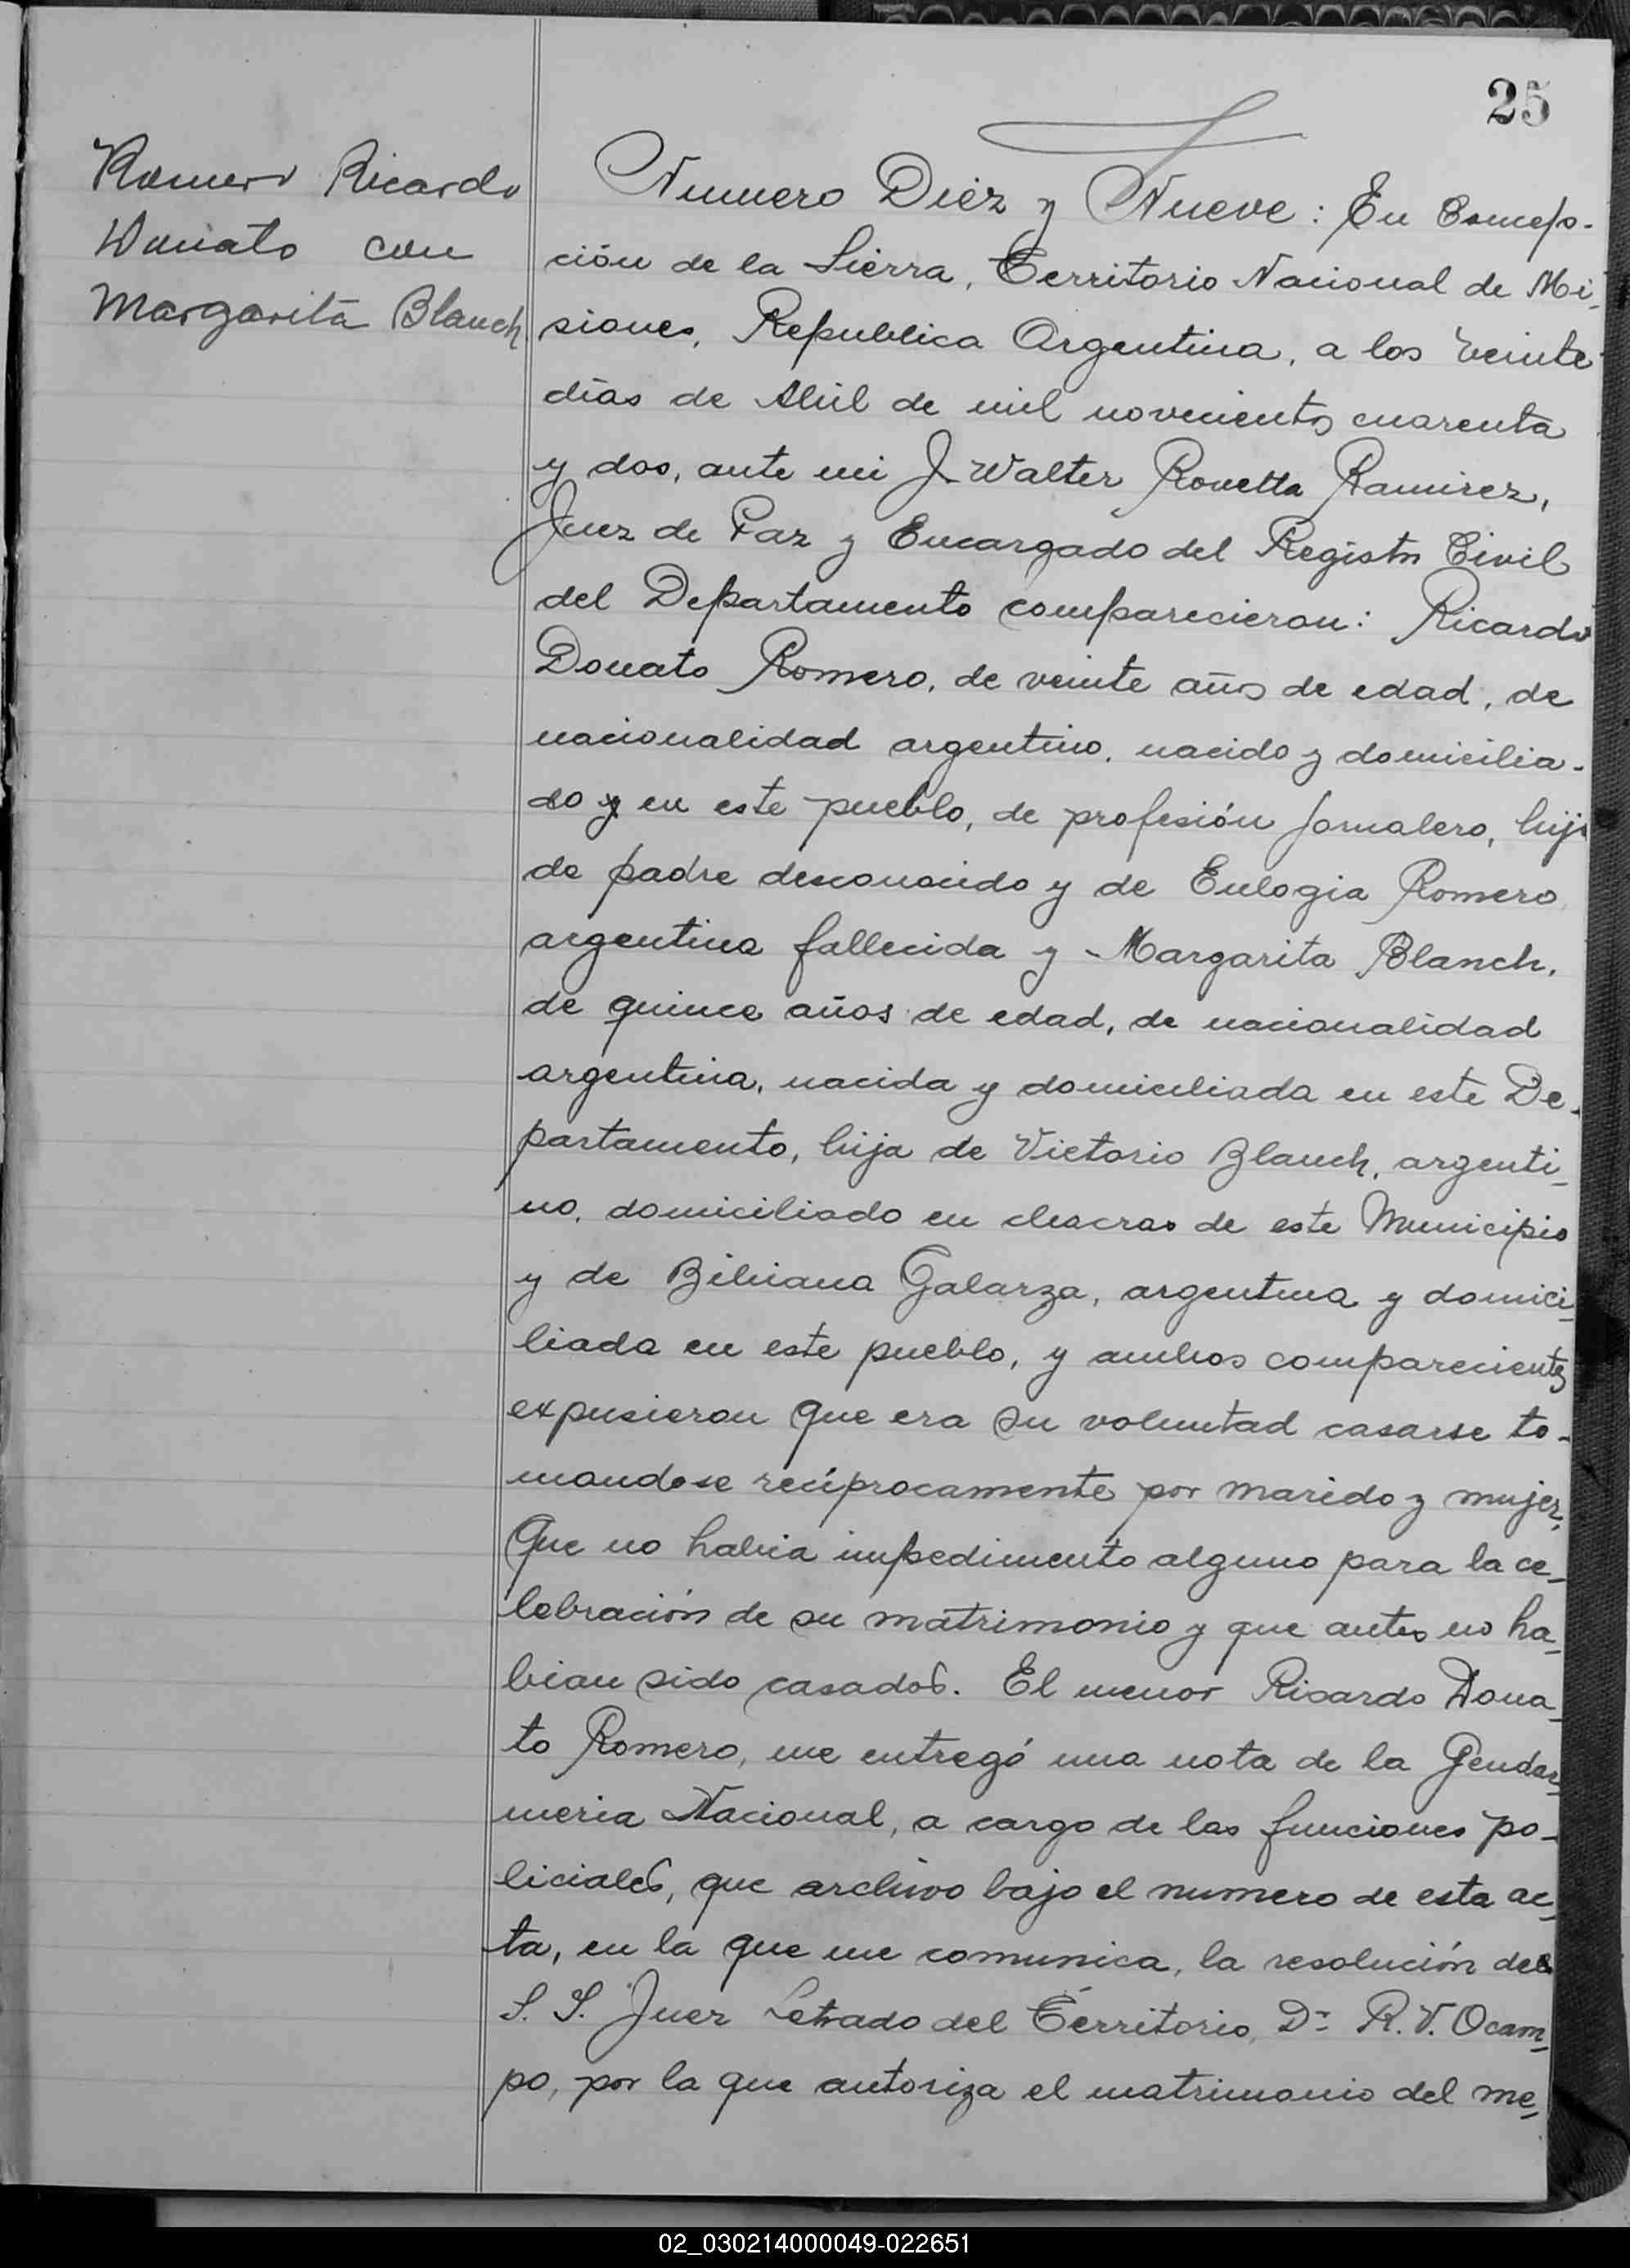 25
Romero Ricardo
Donato con
Margarita Blanch
Numero Diéz y Nueve: En Concep-
ción de la Sierra, Territorio Nacional de Mi-
siones, Republica Argentina, a los veinte
días de Abril de mil novecientos cuarenta
y dos, ante mi J. Walter Rovetta Ramirez,
Juez de Paz y Encargado del Registro Civil
del Departamento comparecieron: Ricardo
Donato Romero, de veinte años de edad, de
nacionalidad argentino, nacido y domicilia-
do y en este pueblo, de profesión jornalero, hijo
de padre desconocido y de Eulogia Romero
argentina fallecida y Margarita Blanch,
de quince años de edad, de nacionalidad
argentina, nacida y domiciliada en este De-
partamento, hija de Victorio Blanch, argenti-
no, domiciliado en chacras de este Municipio
y de Bibiana Galarza, argentina y domici-
liada en este pueblo, y ambos comparecientes
expusieron que era su voluntad casarse to-
mandose recíprocamente por marido y mujer,
Que no habia impedimento alguno para la ce-
lebración de su matrimonio y que antes no ha-
bian sido casados. El menor Ricardo Dona-
to Romero, me entregó una nota de la Gendar-
meria Nacional, a cargo de las funciones po-
liciales, que archivo bajo el numero de esta ac-
ta, en la que me comunica, la resolución de
S. S. Juez Letrado del Territorio, Dr. R. V. Ocam-
po, por la que autoriza el matrimonio del me-
02_030214000049-022651